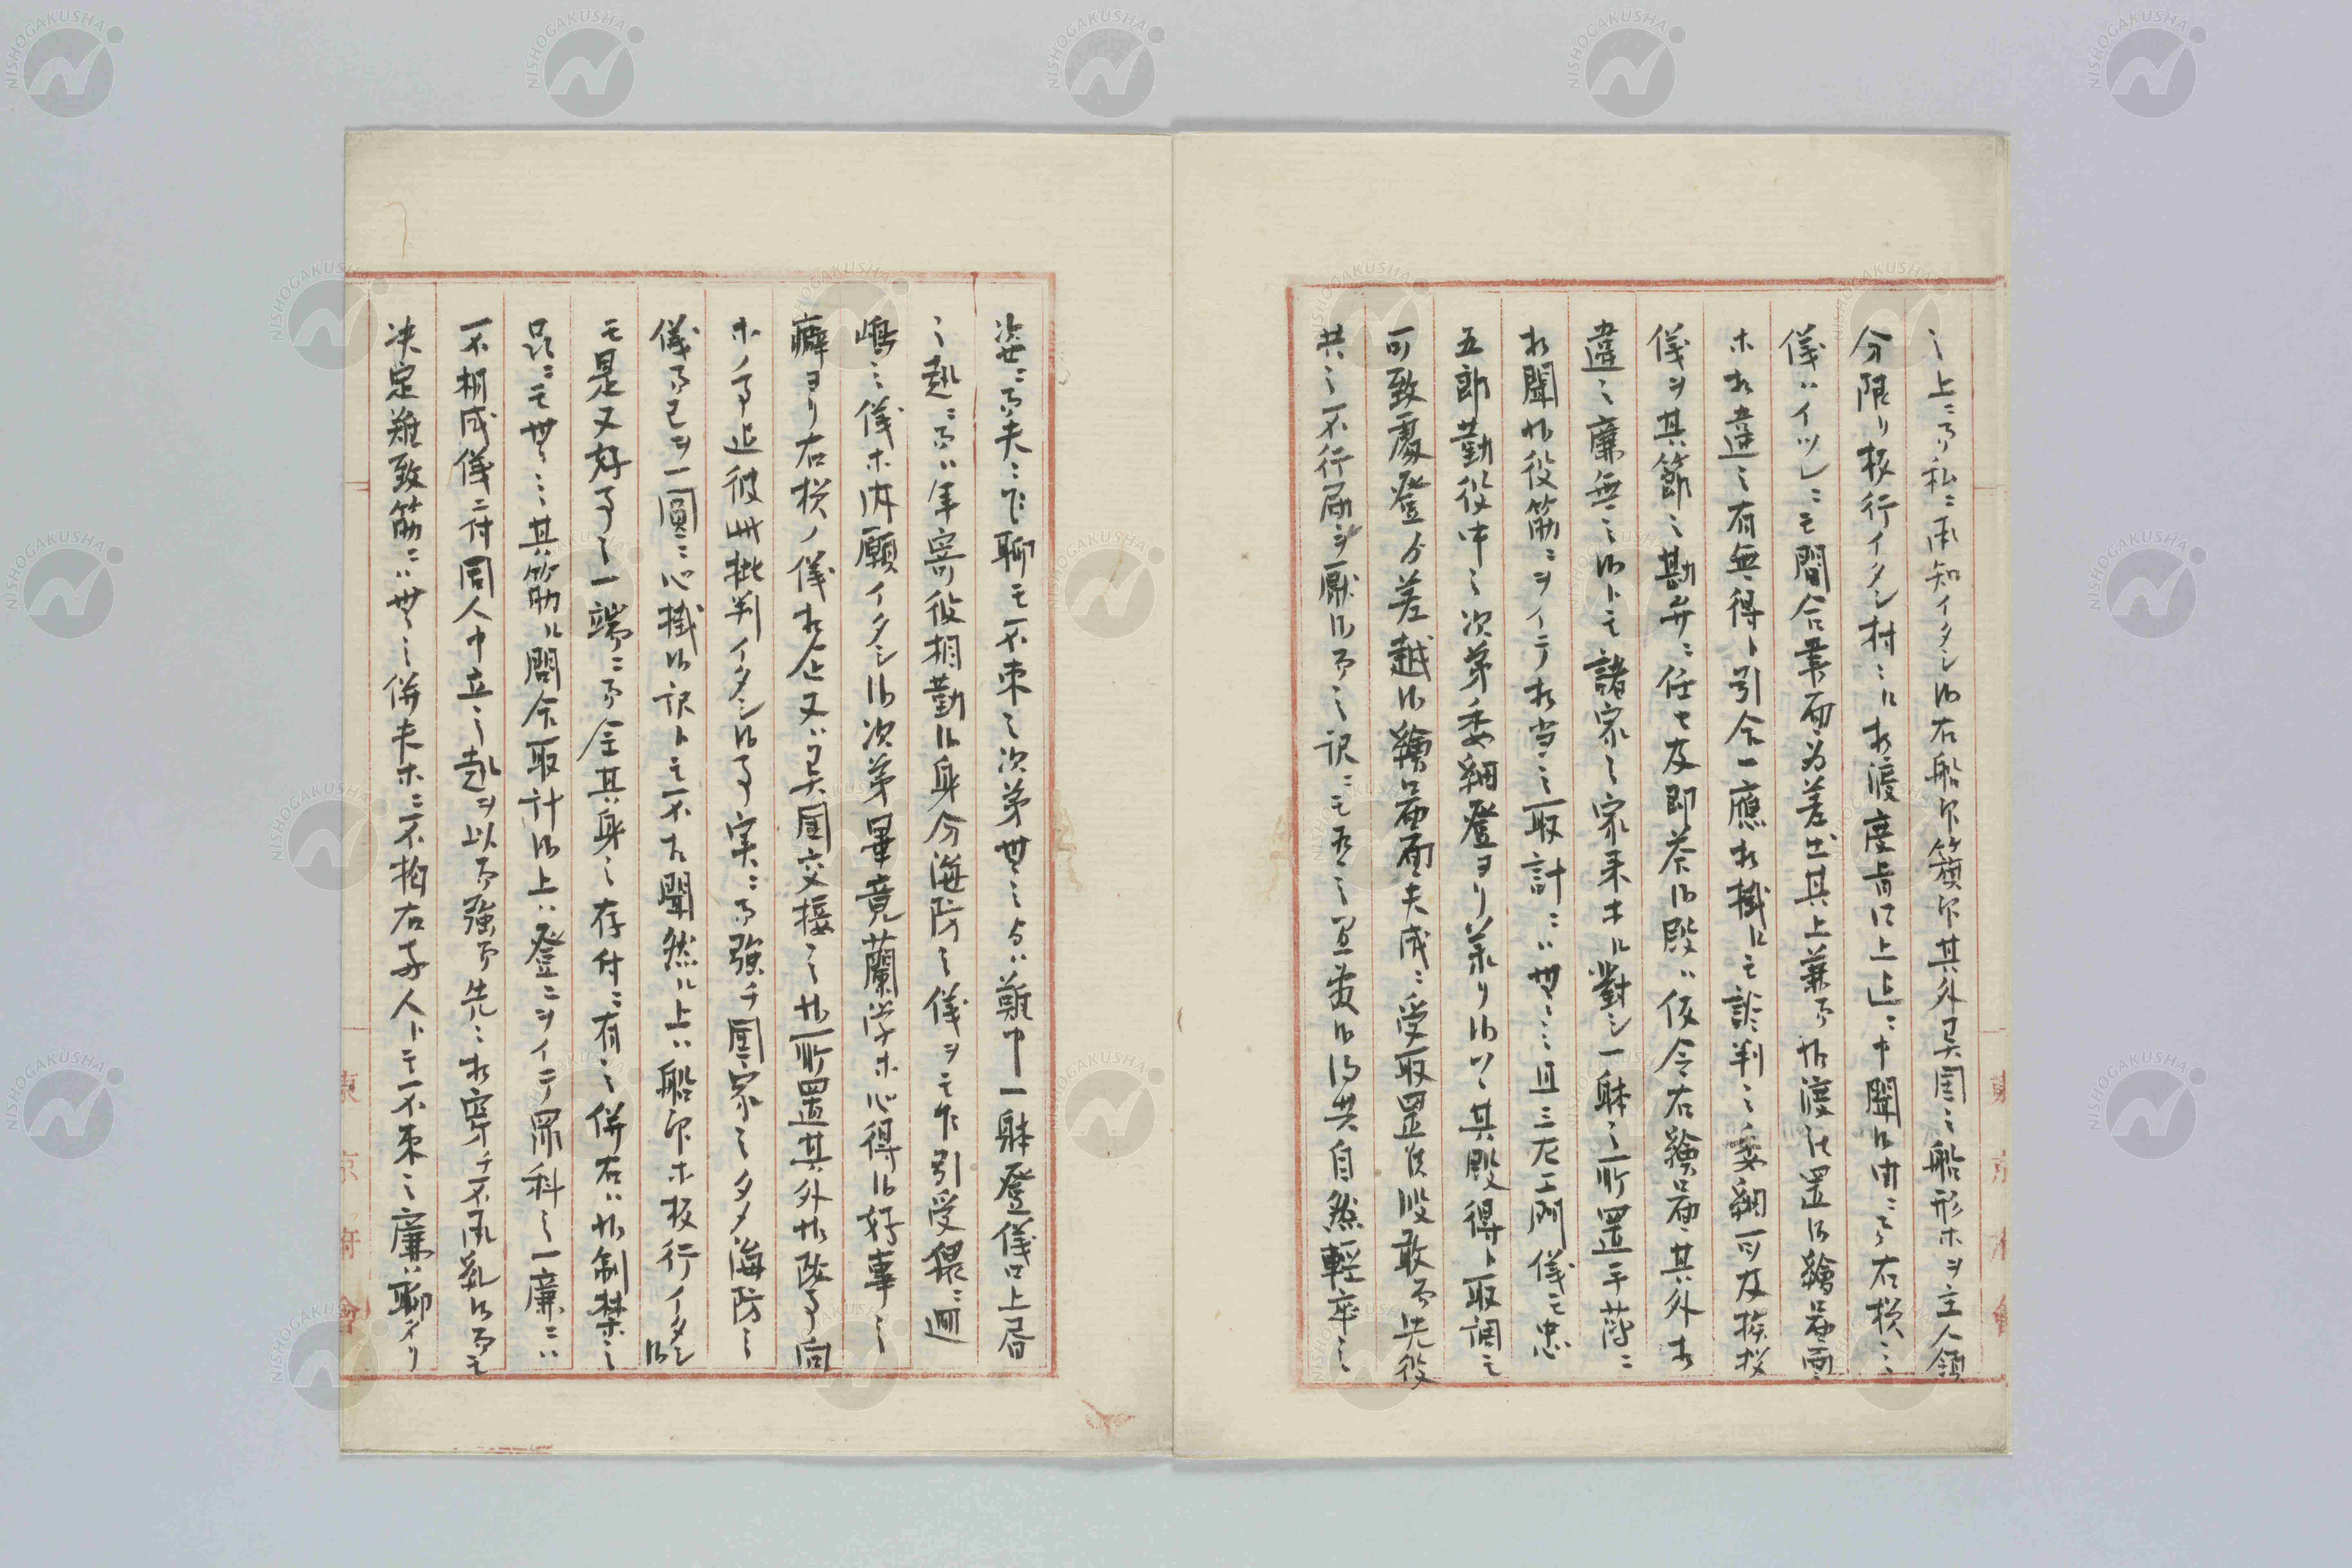 之上ニ而私ニ承知イタシ候右船印籏印其外異国之船形ホヲ主人領
分限リ板行イタシ村々江相渡度旨御上江申聞候由ニ而右様之
儀ハイツレニモ間合書面為差出其上兼而御渡被置候繪圖面
ホ相違之有無得ト引合一應相掛江モ談判之委細可及挨拶
儀ヲ其節之勘弁ニ任セ及即答候段ハ仮令右繪圖面其外相
違之廉無之候トモ諸家之家来ホ江對シ一躰之所置手薄ニ
相聞御役筋ニヲイテ相当之取計ニハ無之且三左エ門儀モ忠
五郎勤役中之次第委細登ヨリ承リ候ハヽ其段得ト取調モ
可致處登ゟ差越候繪圖面夫成ニ受取置後役敢而先役
共之不行届ヲ厭候而之訳ニモ有之間敷候得共自然軽卒之
姿ニ而夫々聊モ不束之次第無之ゟハ難申一躰登儀口上居
之趣ニ而ハ年寄役相勤候身分海防之儀ヲモ乍引受猥ニ廻
嶋之儀ホ内願イタシ候次第畢竟蘭学ホ心得候好事之
癖ヨリ右様ノ儀相企又ハ異国交接之御所置其外御政事向
ホノ事迄彼此批判イタシ候事実ニ而強チ国家之タメ海防之
儀而已ヲ一圓ニ心掛候訳トモ不相聞然ル上ハ船印ホ板行イタシ候
モ是又好事之一端ニ而全其身之存付ニ有之併右ハ御制禁之
品ニモ無之其筋江問合取計候上ハ登ニヲイテ罪科之一廉ニハ
不相成儀ニ付同人申立之趣ヲ以而強而先々相穿チ不及糺候而モ
決定難致筋ニハ無之併夫ホニ不拘右両人トモ不束之廉ハ聊ヨリ
東京府會